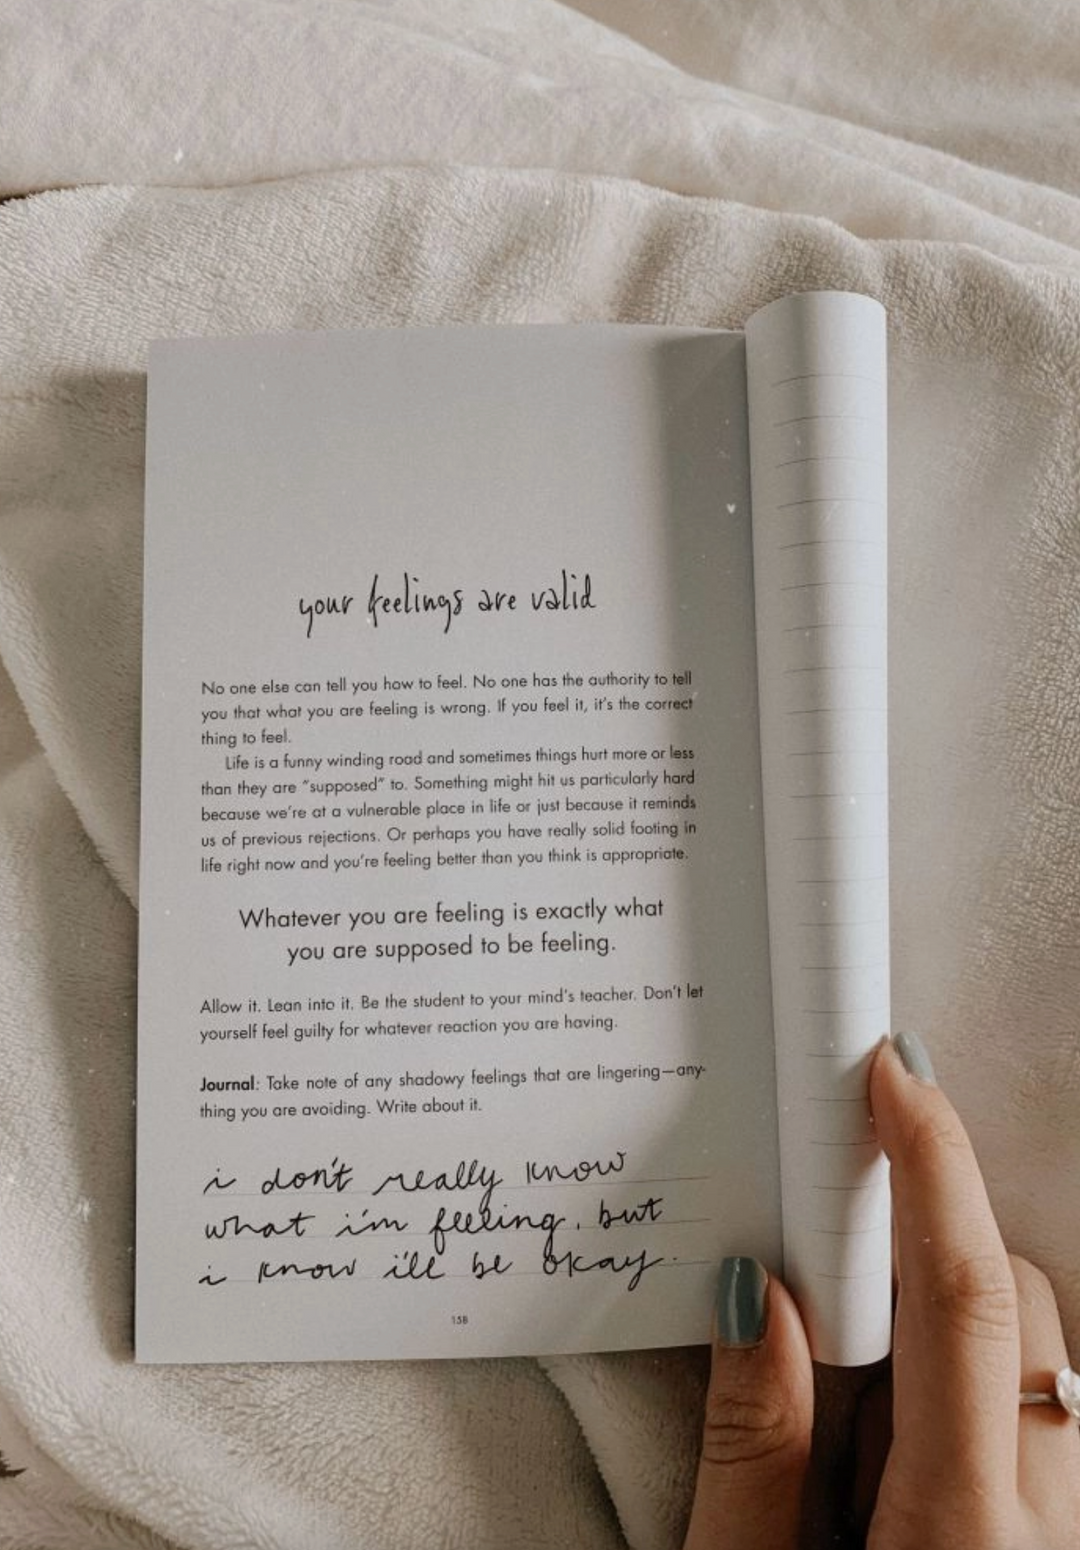 your feelings are valid
No one else can tell you how to feel. No one has the authority to tell
you that what you are feeling is wrong. If you feel it, it's the correct
thing to feel.
Life is a funny winding road and sometimes things hurt more or less
than they are "supposed" to. Something might hit us particularly hard
because we're at a vulnerable place in life or just because it reminds
us of previous rejections. Or perhaps you have really solid footing in
life right now and you're feeling better than you think is appropriate.
Whatever you are feeling is exactly what
you are supposed to be feeling.
Allow it. Lean into it. Be the student to your mind's teacher. Don't let
yourself feel guilty for whatever reaction you are having.
Journal: Take note of any shadowy feelings that are lingering—any-
thing you are avoiding. Write about it.
i don't really know
what i'm feeling, but
i know i'll be okay.
158